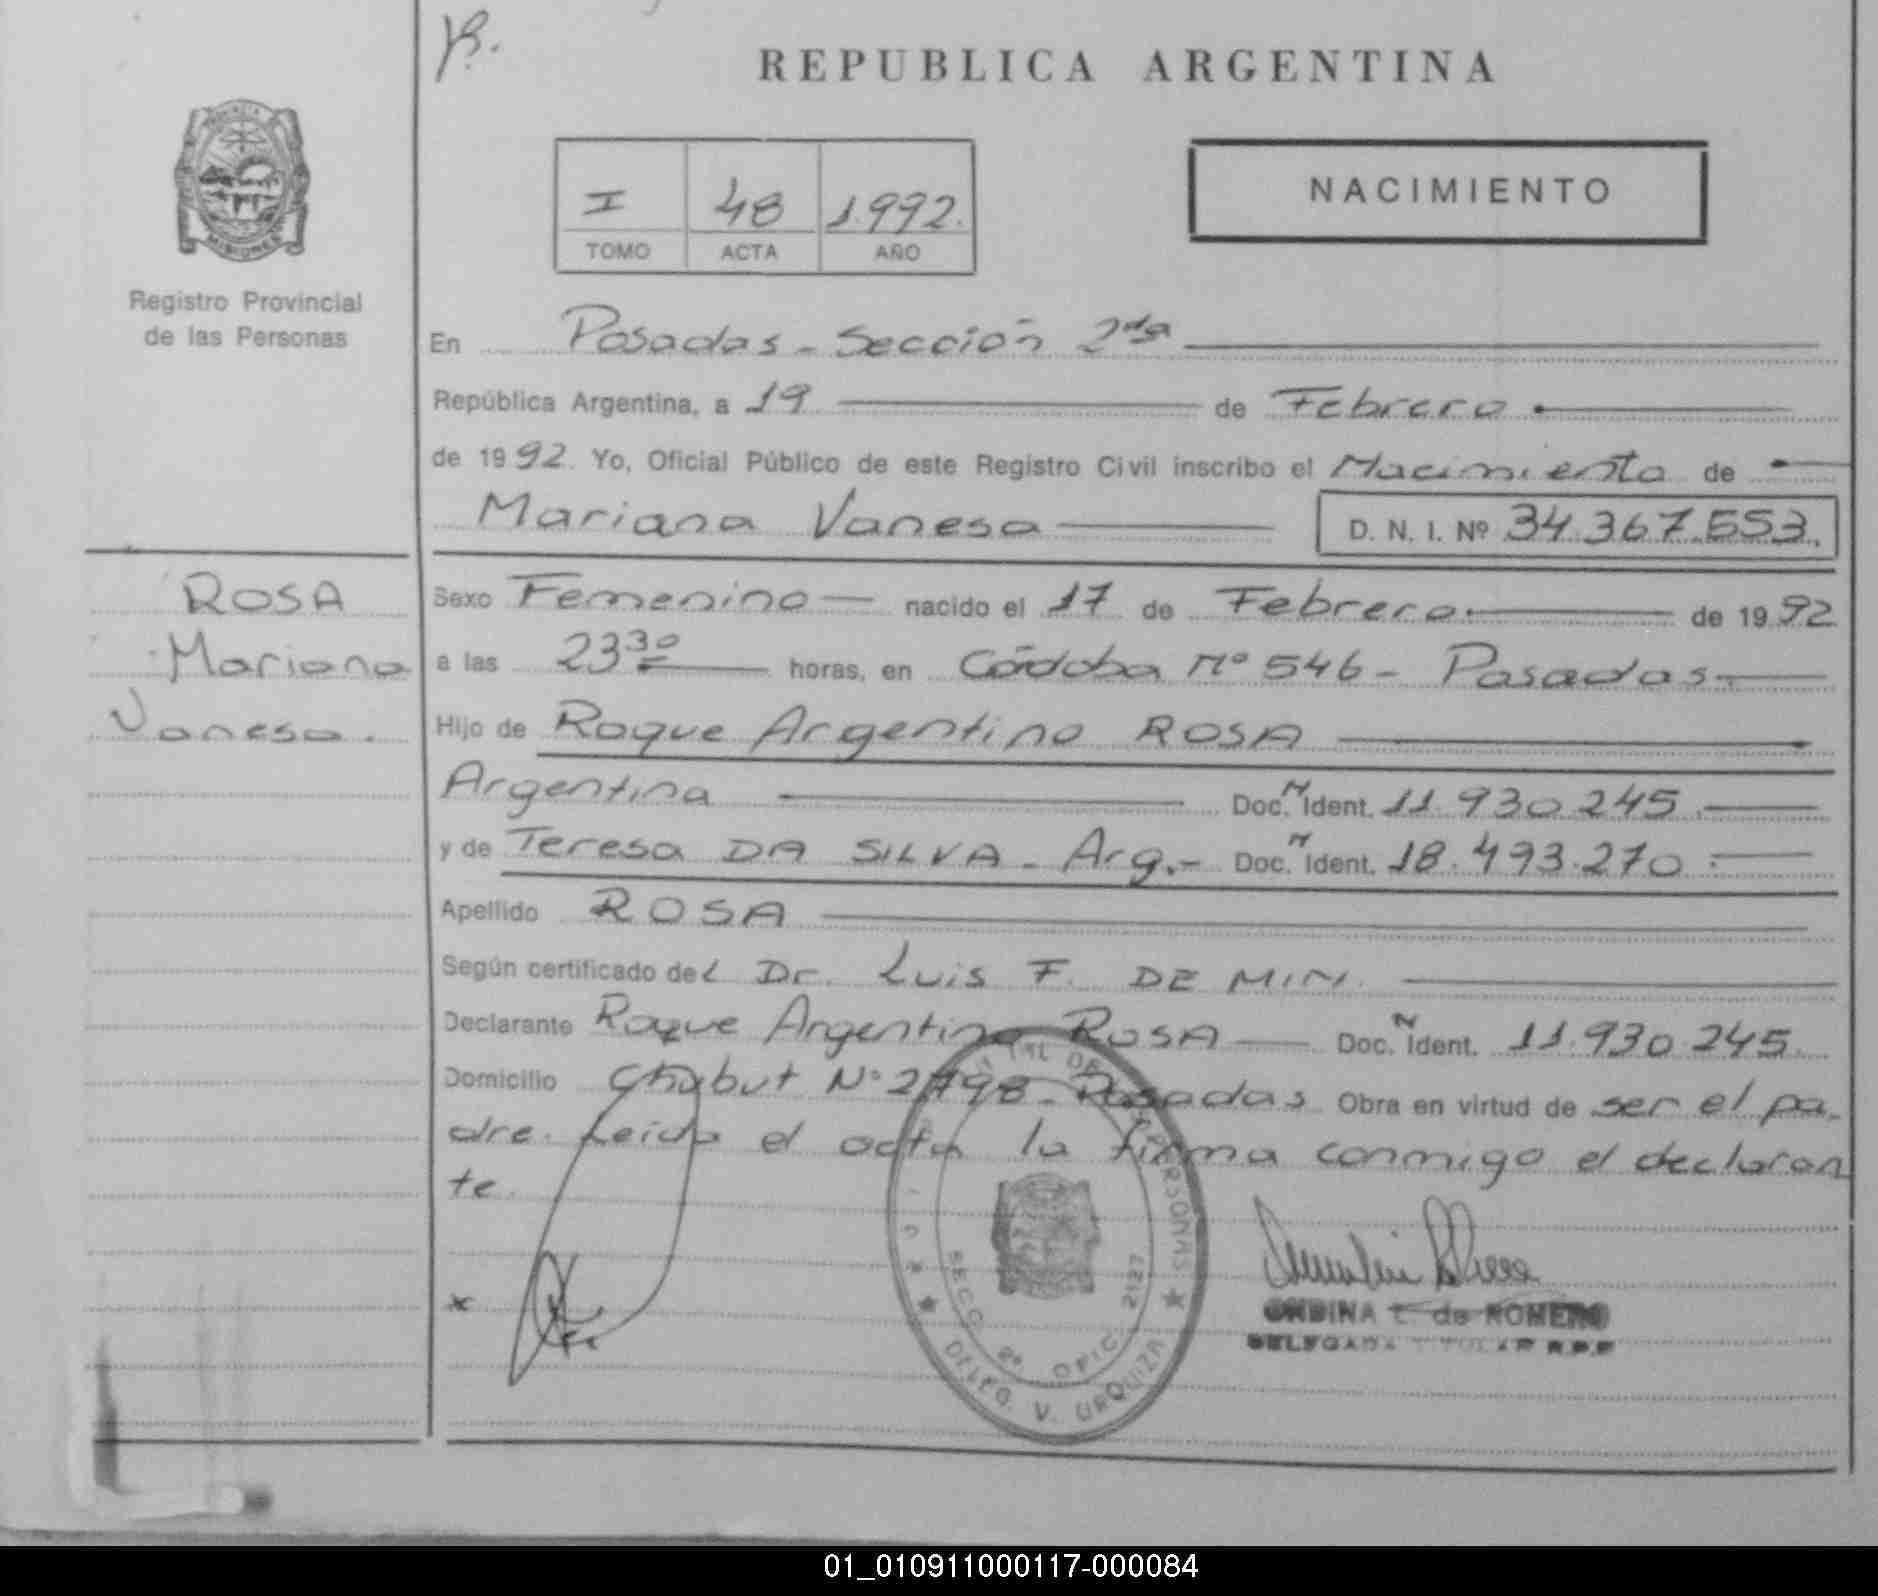 REPUBLICA ARGENTINA
I 48 1.992.
TOMO ACTA AÑO
NACIMIENTO
MISIONES
Registro Provincial
de las Personas
En Posadas - Sección 2da
República Argentina, a 19 de Febrero
de 1992. Yo, Oficial Público de este Registro Civil inscribo el Nacimiento de
Mariana Vanesa D. N. I. Nº 34.367.553.
ROSA
Mariana
Vanesa.
Sexo Femenino nacido el 17 de Febrero de 1992
a las 23 30 horas, en Córdoba Nº 546 - Posadas
Hijo de Roque Argentino ROSA
Argentina Doc. N Ident. 11.930.245.
y de Teresa DA SILVA - Arg.- Doc. N Ident. 18.493.270.
Apellido ROSA
Según certificado del Dr. Luis F. DE MIN.
Declarante Roque Argentino ROSA Doc. N Ident. 11.930.245.
Domicilio Chubut Nº 2798 - Posadas Obra en virtud de ser el pa-
dre. Leida el acta la firma conmigo el declaran
te.
SECC. 2ª OFIC. 2127
DELEG. V. URQUIZA
de ROMERO
DELEGADA TITULAR R.P.P
01_010911000117-000084